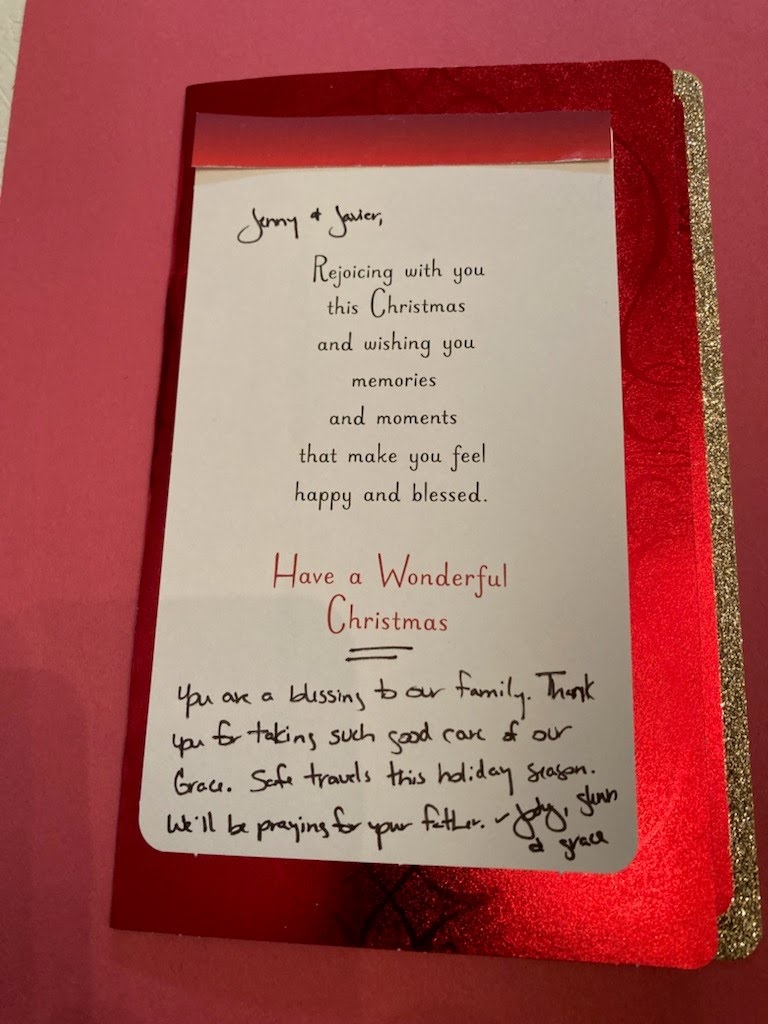 Jenny & Javier,
Rejoicing with you
this Christmas
and wishing you
memories
and moments
that make you feel
happy and blessed.
Have a Wonderful
Christmas
You are a blessing to our family. Thank
you for taking such good care of our
Grace. Safe travels this holiday season.
We'll be praying for your father. ~ Jody, Glenn
& Grace